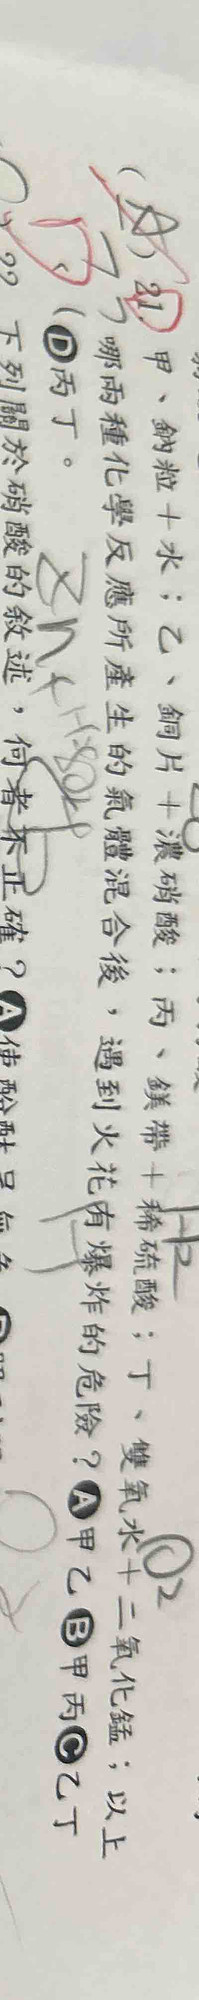 (A) 21. 甲、鈉粒＋水；乙、銅片＋濃硝酸；丙、鎂帶＋稀硫酸；丁、雙氧水＋二氧化錳；以上
H2
O2
哪兩種化學反應所產生的氣體混合後，遇到火花有爆炸的危險？Ⓐ甲乙Ⓑ甲丙Ⓒ乙丁
Ⓓ丙丁。
Zn+H2SO4
22 下列關於硝酸的敘述，何者不正確？Ⓐ使酚酞呈無色